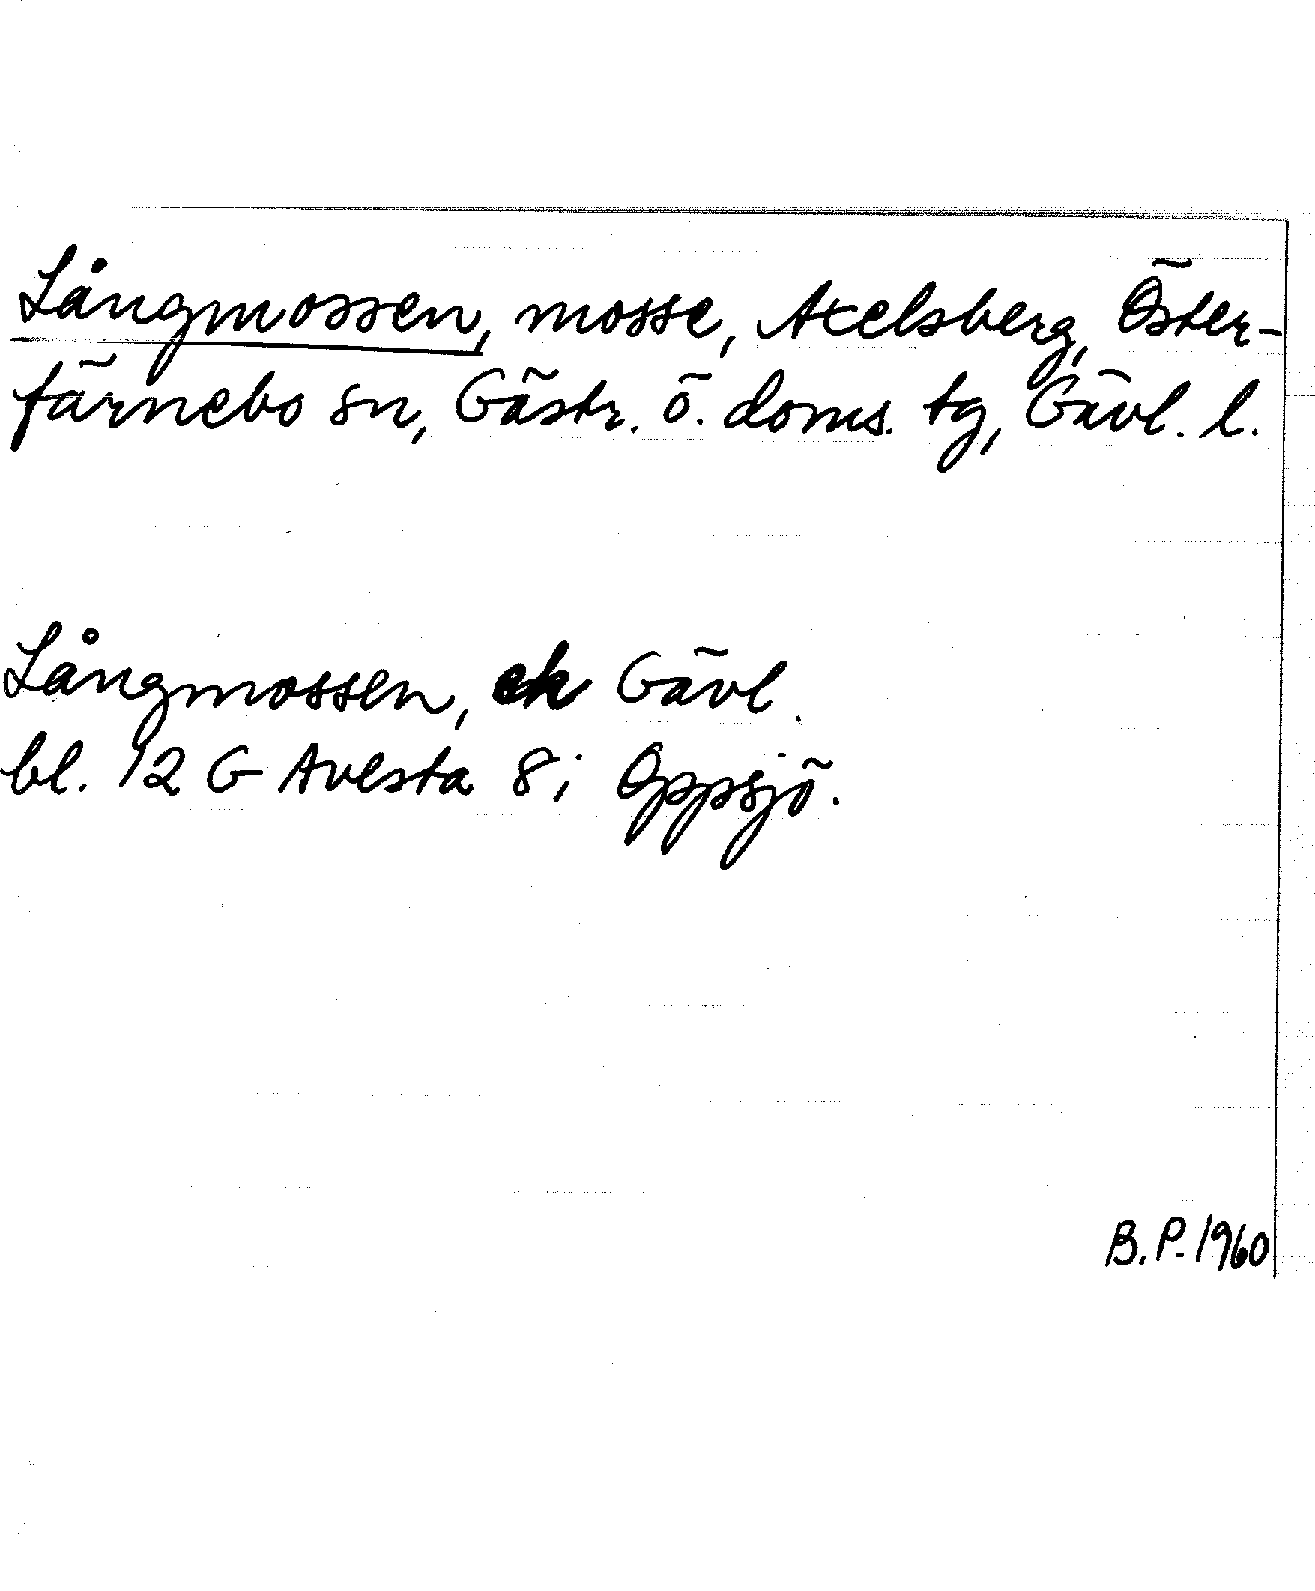 Långmossen, mosse, Axelsberg, Öster-
färnebo sn, Gästr. ö. doms. tg, Gävl. l.
Långmossen, ek Gävl.
bl. 12 G Avesta 8i Oppsjö.
B.P. 1960